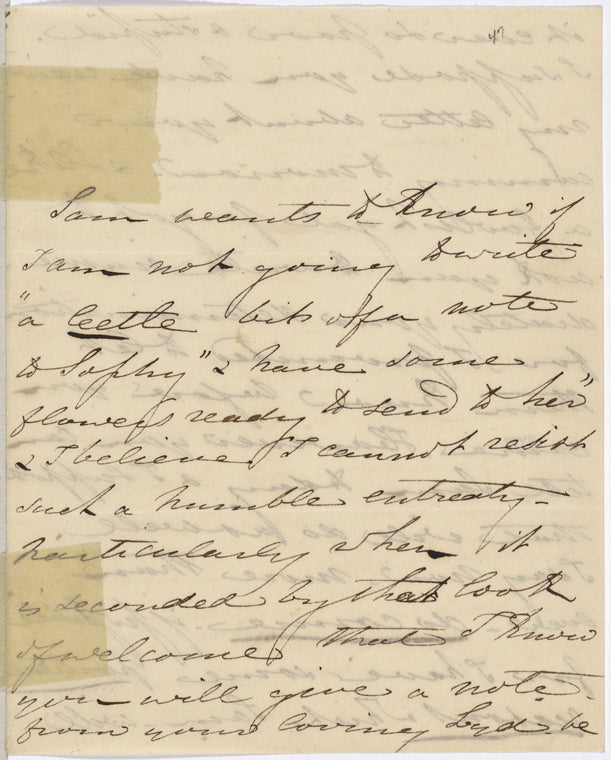 47
Sam wants to know if
I am not going to write
"a leetle bit of a note
to Sophy" & have some
flowers ready to send to her"
& I believe I cannot resist
such a humble entreaty-
particularly when it
is seconded by that look
of welcome that I know
you will give a note
from your loving Lyd. be